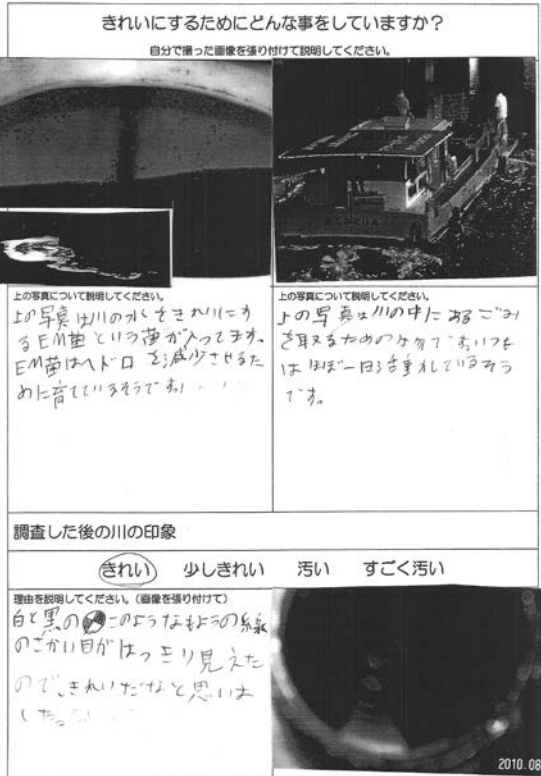 きれいにするためにどんな事をしていますか？
自分で撮った画像を張り付けて説明してください。
上の写真について説明してください。
上の写真は川の水をきれいにす
るEM菌という菌が入ってます。
EM菌はヘドロを減少させるた
めに育てているそうです。
上の写真について説明してください。
上の写真は川の中にあるごみ
を取るための
はほぼ一日活動しているそう
です。
調査した後の川の印象
きれい 少しきれい 汚い すごく汚い
理由を説明してください。(画像を張り付けて)
白と黒の このようなもようの線
のさかい目がはっきり見えた
ので、きれいだなと思いま
した。
2010.08